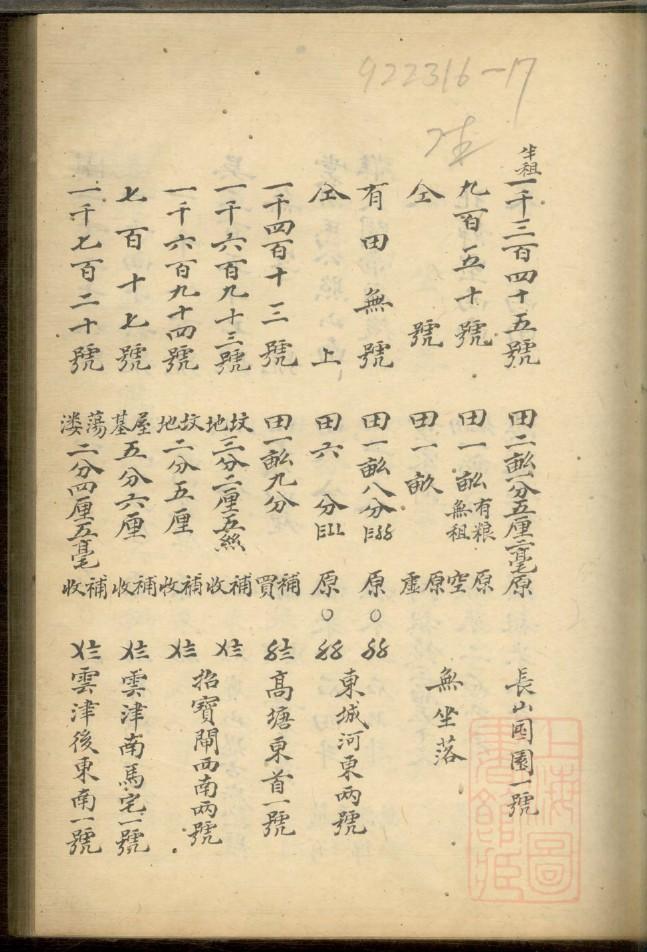 922316-17
半租
一千三百四十五號 田二畝一分五厘二毫 原 長山園園一號
九百五十號 田一畝 有粮無租 原空 無坐落
仝 號 田一畝 原虛
有田無號 田一畝八分 原〇 東城河東兩號
仝上 田六分 原〇
一千四百十三號 田一畝九分 補買 高塘東首一號
一千六百九十三號 坟地三分二厘五絲 補收 〤〨 招寶閘西南兩號
一千六百九十四號 坟地二分五厘 補收
七百十七號 屋基五分六厘 補收 雲津南馬宅一號
一千七百二十號 蕩漊二分四厘五毫 補收 雲津後東南一號
上海圖書館藏